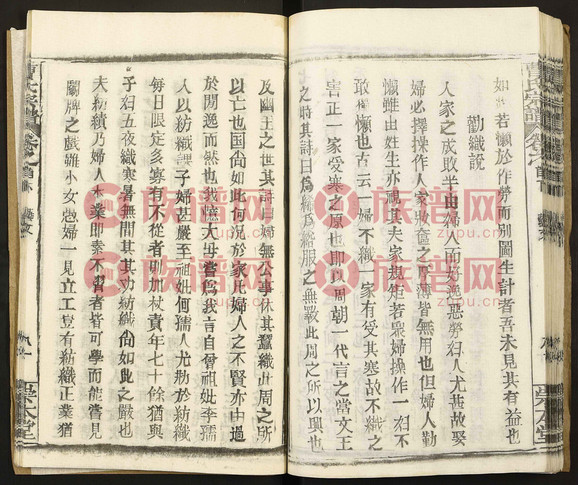 曹氏宗譜
如
若懶於作勞而別圖生計者吾未見其有益也
勸織説
人家之成敗半由婦人而好逸惡勞婦人尤甚故娶
婦必擇操作人家妝奩之厚薄皆無用也但婦人勤
懶雖由姓生亦視其夫家規矩若衆婦操作一婦不
敢獨懶也古云一婦不織一家有受其寒故不織之
害正一家受樂之原也即以周朝一代言之當文王
之時其詩曰爲絺爲綌服之無斁此周之所以興也
崇本堂
及幽王之世其詩曰婦無公事休其蠶織此周之所
以亡也国尙如此何況於家此婦人之不賢亦由過
於閒逸而然也我憶大母嘗爲我言自曾祖妣李孺
人以紡織課子婦甚嚴至祖妣何孺人尤勤於紡織
每日眼定多寡有不從者則加杖責年七十餘猶與
子婦五夜織寒暑無間其
功紡織尙如此之嚴也
夫紡績乃婦人本業即素不習者皆可學而能嘗見
鬭牌之戲雖小女
婦一見立工豈有紡織正業猶
曹氏宗譜
崇本堂
族谱网
zupu.cn